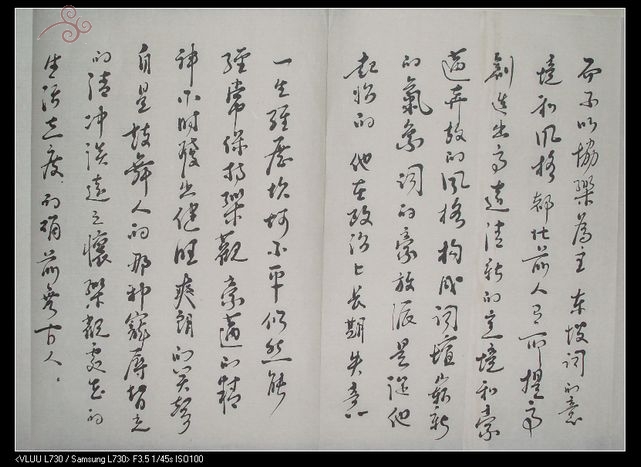 而不以协乐为主 东坡词的意
境和风格都比前人有所提高
创造出高远清新的意境和豪
迈奔放的风格 构成词坛崭新
的气象 词的豪放派是从他
起始的 他在政治上长期失意
一生经历坎坷不平 仍然能
经常保持乐观 豪迈的精
神 不时发出健旺爽朗的笑声
自是鼓舞人的 那种宠辱皆忘
的清冲淡远之怀 乐观处世的
生活态度 的确前无古人。
<VLUU L730 / Samsung L730> F3.5 1/45s ISO100